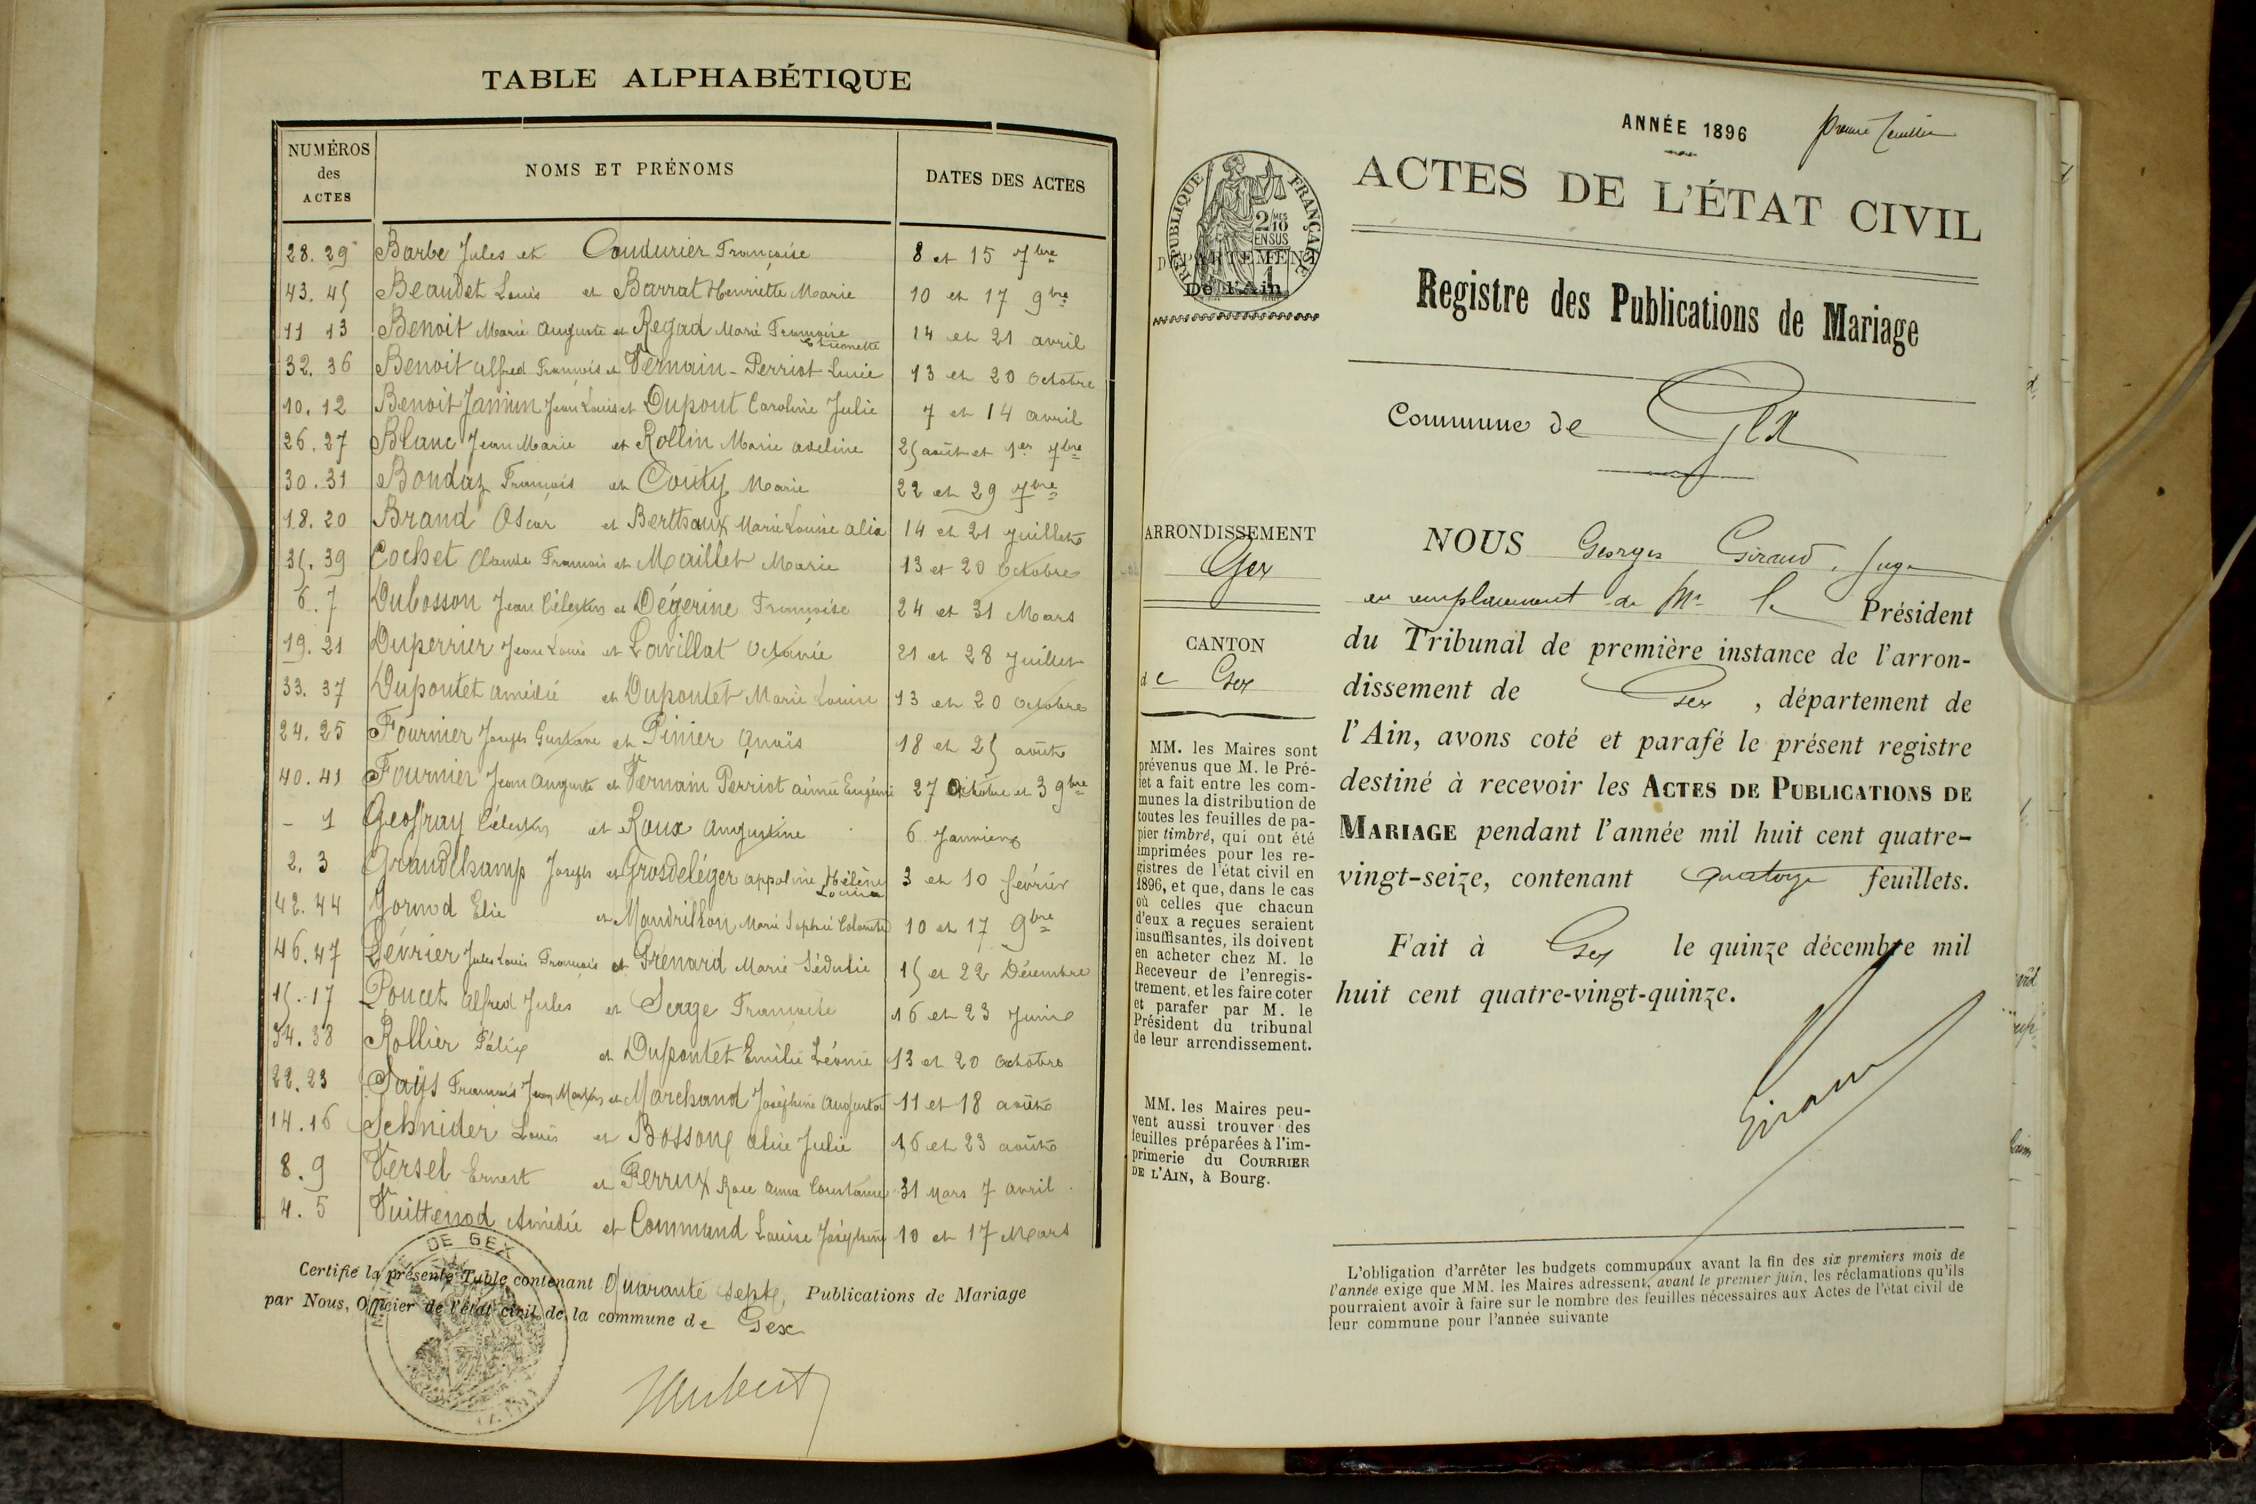 TABLE ALPHABÉTIQUE
NUMÉROS
des
ACTES
NOMS ET PRÉNOMS
DATES DES ACTES
28. 29 Barbe Jules et Coudurier Françoise 8 et 15 7bre
43. 45 Beaudet Louis et Barrat Henriette Marie 10 et 17 9bre
11 13 Benoit Marie Auguste et Regad Marie Françoise 14 et 21 avril
Etiennette
32. 36 Benoit Alfred François et Vernain-Perriot Lucie 13 et 20 octobre
10. 12 Benoit Janinn Jean Louis et Dupont Caroline Julie 7 et 14 avril
26. 27 Blanc Jean Marie et Rollin Marie Adeline 25 août et 1er 7bre
30. 31 Boudaz François et Couty Marie 22 et 29 7bre
18. 20 Brand Oscar et Berthaux Marie Louise Alia 14 et 21 Juillet
35. 39 Cochet Claude François et Maillet Marie 13 et 20 Octobre
6. 7 Dubosson Jean Célestin et Dégerine Françoise 24 et 31 Mars
19. 21 Duperrier Jean Louis et Lavillat Octavie 21 et 28 Juillet
33. 37 Dupontet Amédié et Dupontet Marie Louise 13 et 20 Octobre
24. 25 Fournier Joseph Gustave et Pinier Anaïs 18 et 25 août
40. 41 Fournier Jean Auguste et Vernain Perriot aimée Eugénie 27 Octobre et 3 9bre
- 1 Geoffray Célestin et Roux Augustine 6 Janvier
2. 3 Grandchamp Joseph et Grosdeléger appoline Hélène 3 et 10 février
Louise
42. 44 Gornod Elie et Mandrillon Marie Sophie Colomete 10 et 17 9bre
46. 47 Lévrier Jules Louis François et Grenard Marie Sédulie 15 et 22 Décembre
15. 17 Poncet Alfred Jules et Serge Françoise 16 et 23 Juin
34. 38 Rollier Félix et Dupontet Emilie Léonie 13 et 20 Octobre
22. 23 Says François Jean Martin et Marchand Joséphine Augusta 11 et 18 août
14. 16 Schnider Louis et Bosson Alice Julie 16 et 23 août
8. 9 Versel Ernest et Perrux Rose Anna Constance 31 Mars 7 avril
4. 5 Vuittenod Amédié et Command Louise Joséphine 10 et 17 Mars
Certifié la présente Table contenant Quarante sept, Publications de Mariage
par Nous, Officier de l'état civil de la commune de Gex
DE GEX
ANNÉE 1896
ACTES DE L'ÉTAT CIVIL
RÉPUBLIQUE FRANÇAISE
2/10
MES
EN SUS
DÉPARTEMENT
1
De l'Ain
Registre des Publications de Mariage
Commune de Gex
ARRONDISSEMENT
Gex
CANTON
de Gex
MM. les Maires sont
prévenus que M. le Pré-
fet a fait entre les com-
munes la distribution de
toutes les feuilles de pa-
pier timbré, qui ont été
imprimées pour les re-
gistres de l'état civil en
1896, et que, dans le cas
où celles que chacun
d'eux a reçues seraient
insuffisantes, ils doivent
en acheter chez M. le
Receveur de l'enregis-
trement, et les faire coter
et parafer par M. le
Président du tribunal
de leur arrondissement.
MM. les Maires peu-
vent aussi trouver des
feuilles préparées à l'im-
primerie du COURRIER
DE L'AIN, à Bourg.
NOUS Georges Giraud, Juge
en remplacement de Mr le Président
du Tribunal de première instance de l'arron-
dissement de Gex, département de
l'Ain, avons coté et parafé le présent registre
destiné à recevoir les ACTES DE PUBLICATIONS DE
MARIAGE pendant l'année mil huit cent quatre-
vingt-seize, contenant quatorze feuillets.
Fait à Gex le quinze décembre mil
huit cent quatre-vingt-quinze.
Giraud
L'obligation d'arrêter les budgets communaux avant la fin des six premiers mois de
l'année exige que MM. les Maires adressent, avant le premier juin, les réclamations qu'ils
pourraient avoir à faire sur le nombre des feuilles nécessaires aux Actes de l'état civil de
leur commune pour l'année suivante